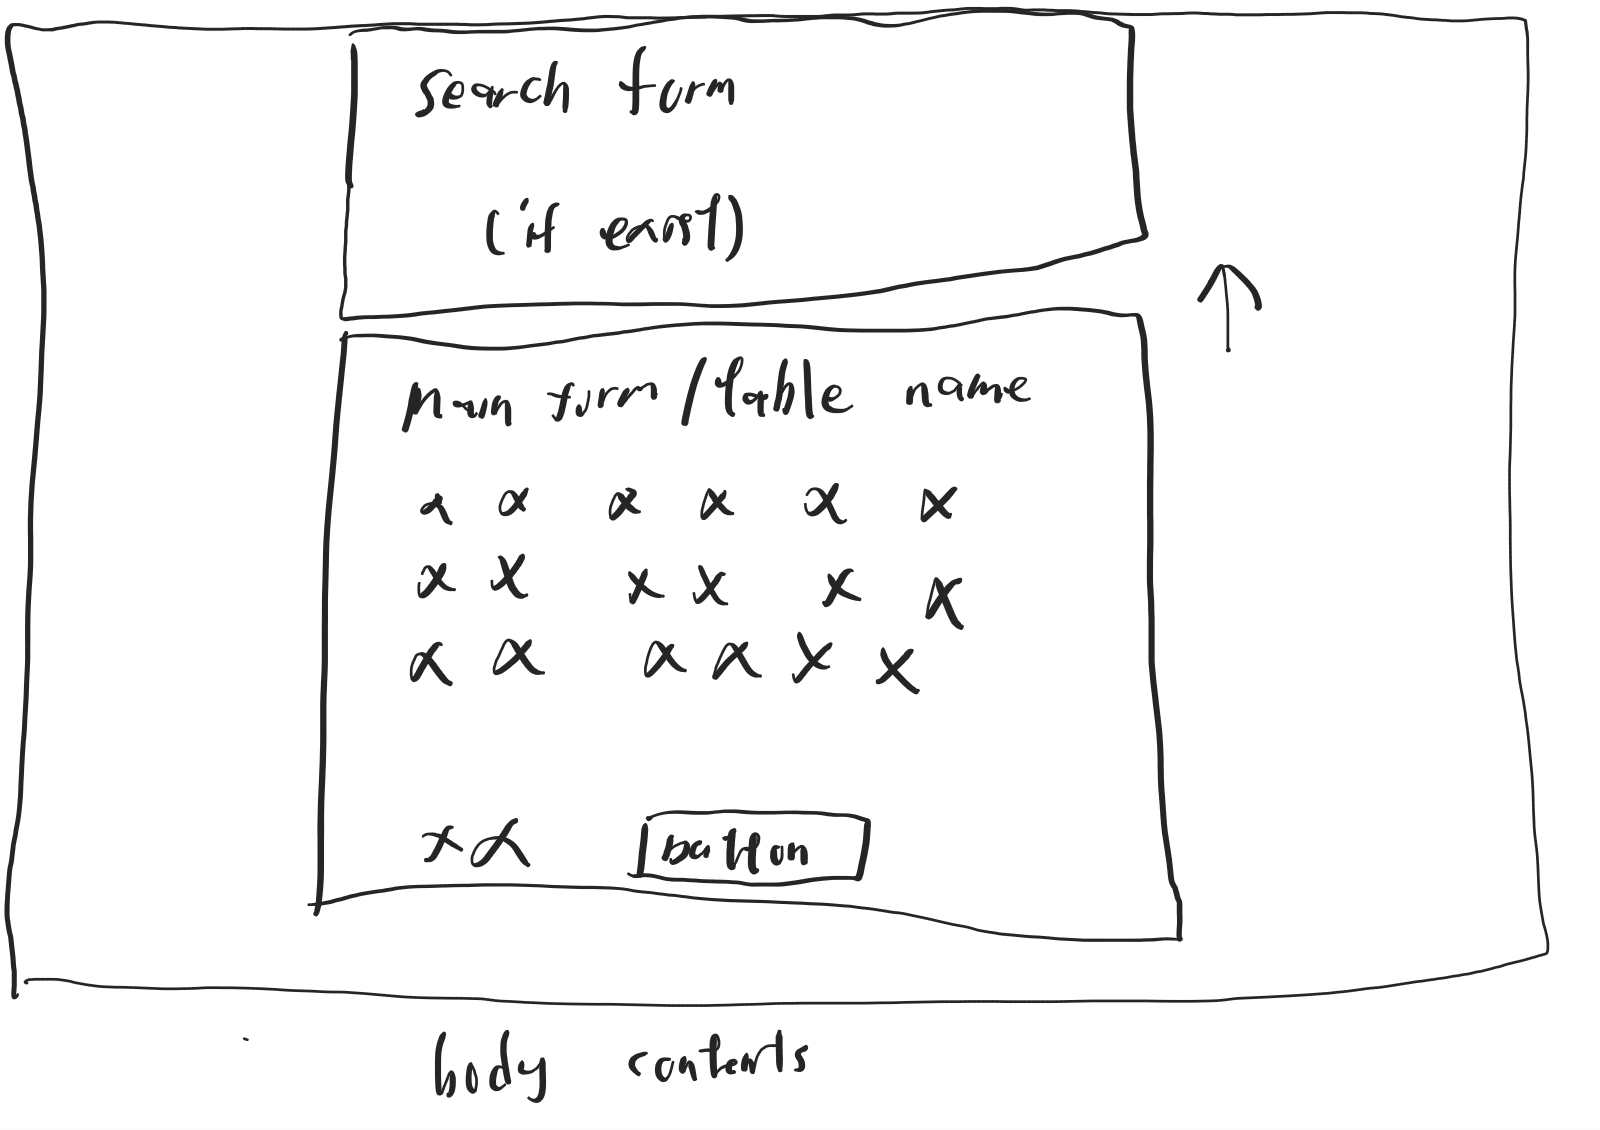 search form
(if exist)
Main form / table name
x x x x x x
x x x x x x
x x x x x x
x x button
body contents